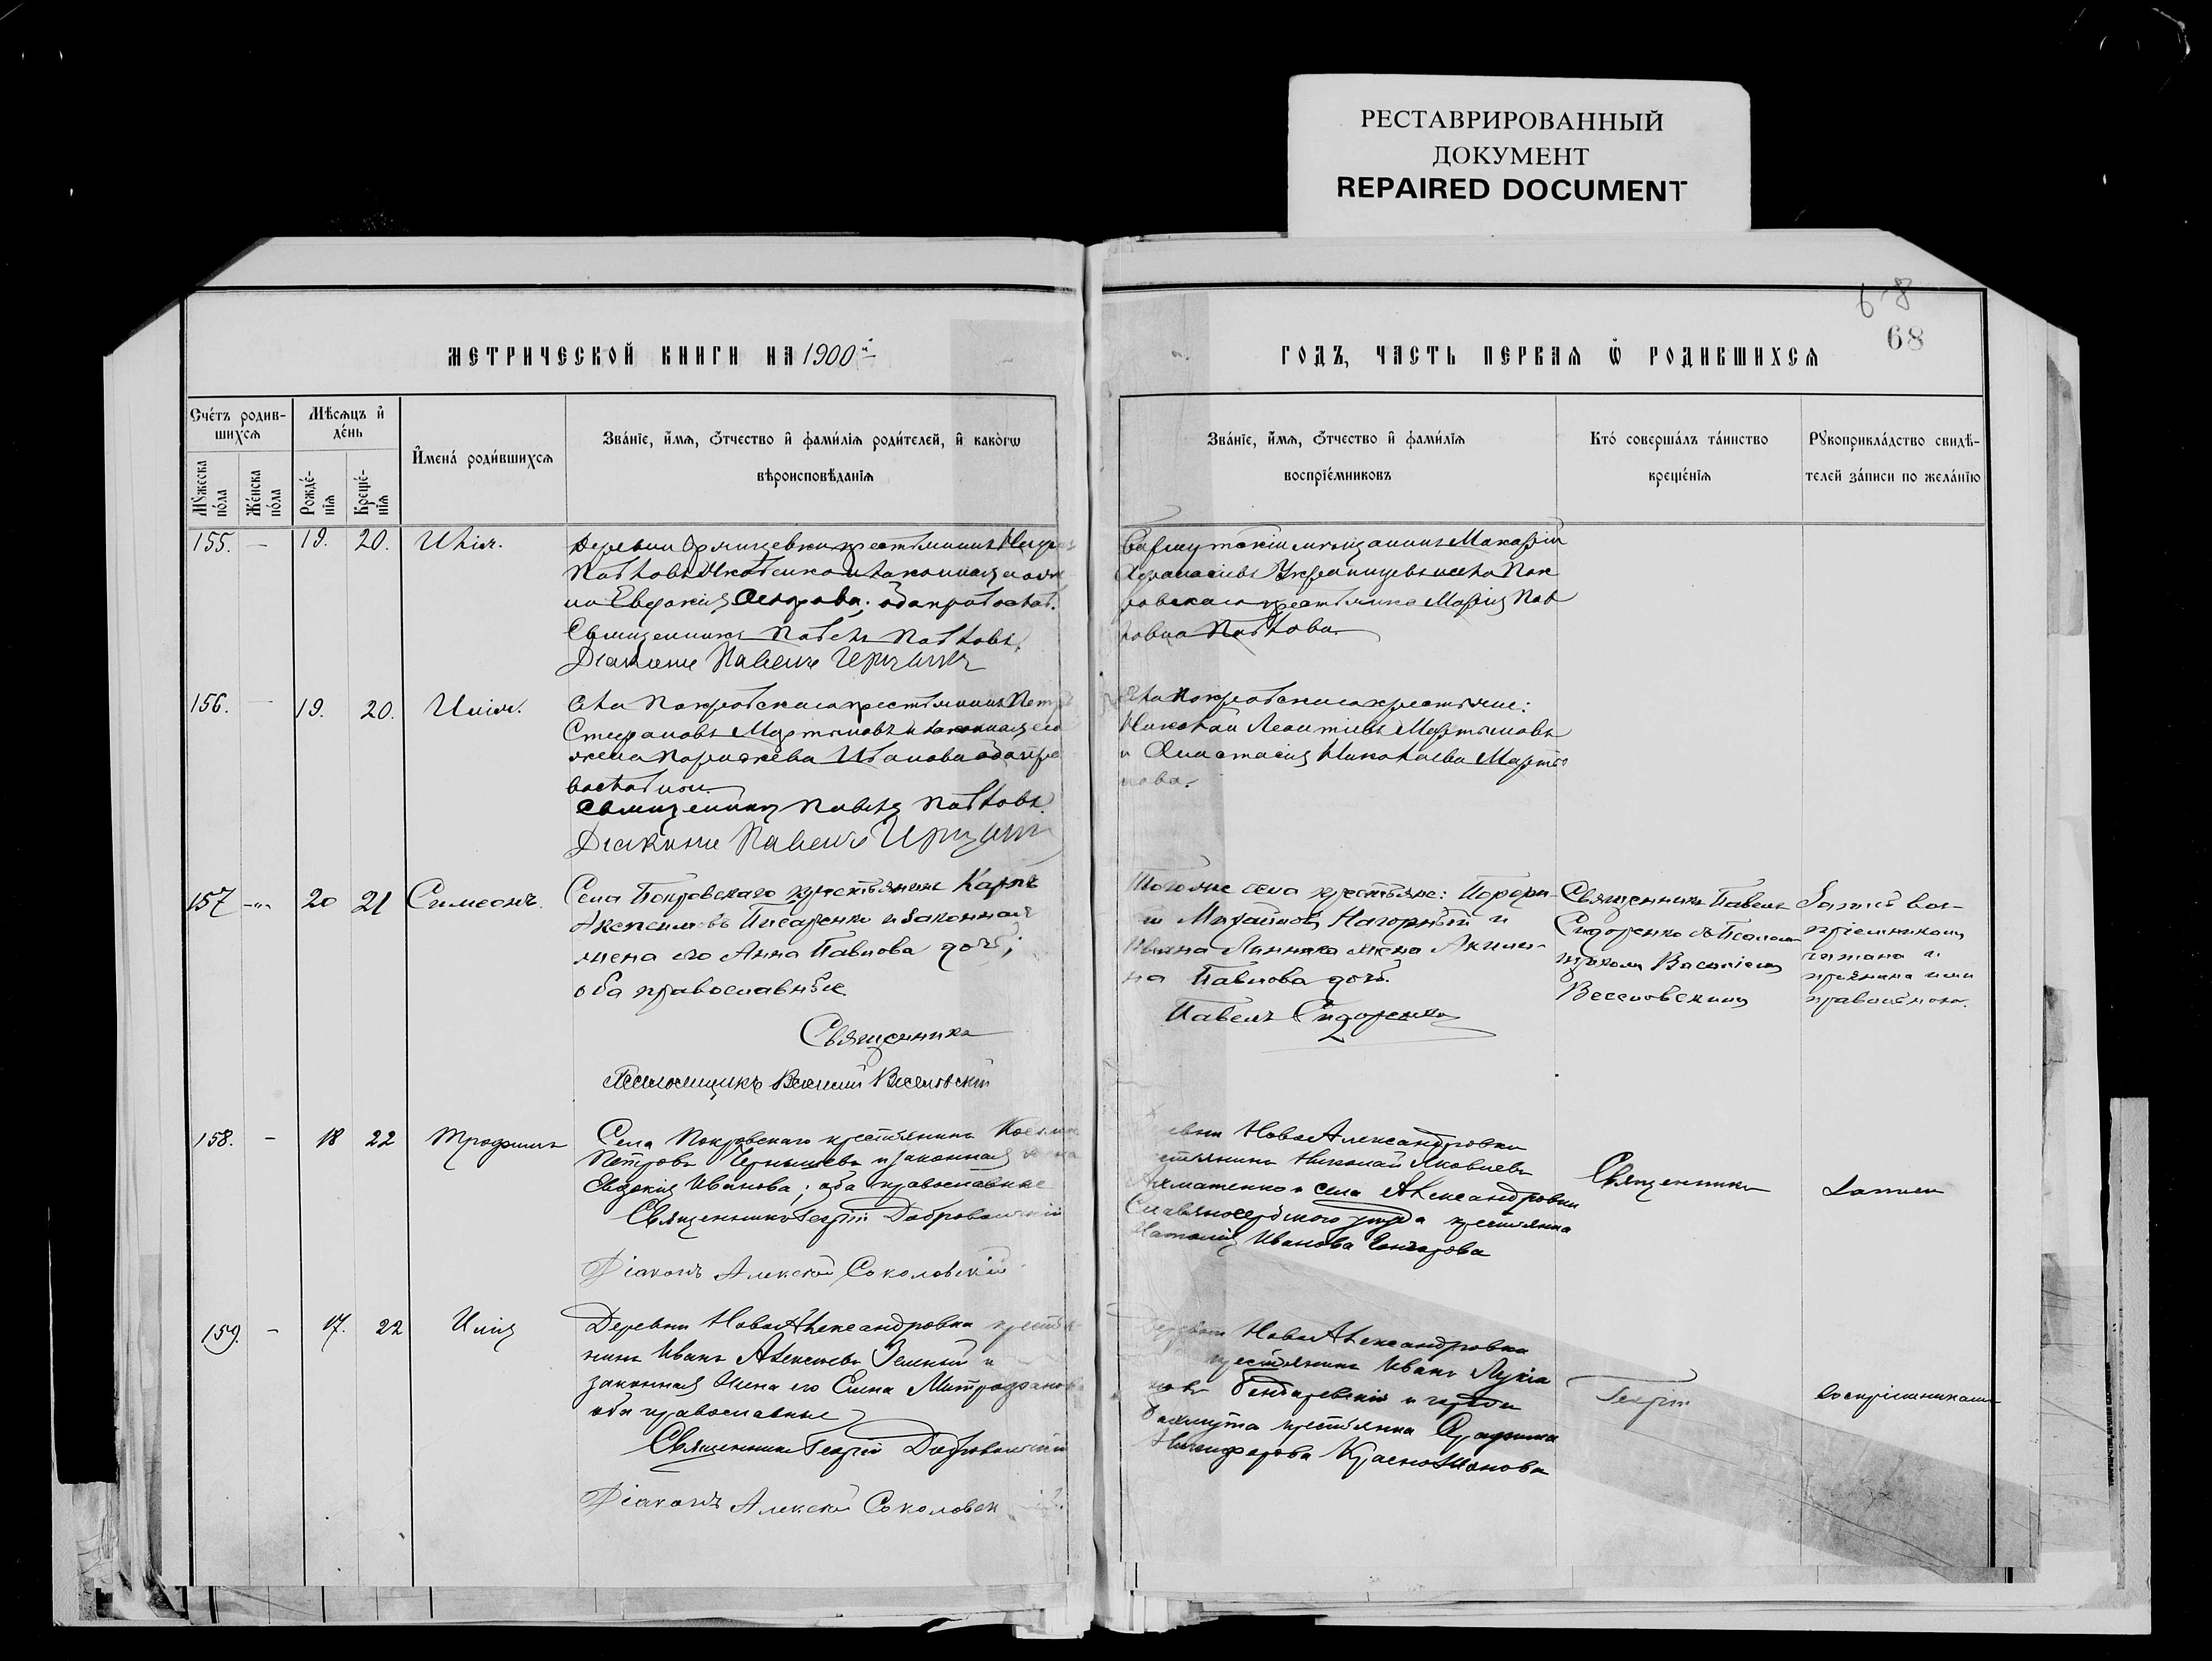 РЕСТАВРИРОВАННЫЙ
ДОКУМЕНТ
REPAIRED DOCUMENT
6-8
68
МЕТРИЧЕСКОЙ КНИГИ НА 1900й
ГОДЪ, ЧАСТЬ ПЕРВАЯ Ѿ РОДИВШИХСЯ
Счетъ родив-
шихся
Мужеска
пола
Женска
пола
Мѣсяцъ и
день
Рожде-
нія
Креще-
нія
Имена родившихся
Званіе, имя, отчество и фамилія родителей, и какогѡ
вѣроисповѣданія
Званіе, имя, отчество и фамилія
воспріемниковъ
Кто совершалъ таинство
крещенія
Рукоприкладство свидѣ-
телей записи по желанію
155. — 19. 20. Илія.
Деревни крестьянинъ
Павловъ Яковенко и законная
на Евдокія обаправослав.
Священникъ Павелъ Павловъ.
Діаконъ Павелъ
Бахмутскій мѣщанинъ Макарій
села Пок
ровскаго крестьянка Марія Пав
лова Павлова.
156. — 19. 20. Илія.
села Покровскаго крестьянинъ Петръ
Стефановъ Мартыновъ и законная его
жена Параскева Иванова оба пра
вославные.
Священникъ Павелъ Павловъ.
Діаконъ Павелъ
села Покровскаго крестьяне:
Николай Леонтіевъ Мартыновъ
и Анастасія Николаева Марты
нова.
157 -"- 20 21 Симеонъ.
Села Покровскаго крестьянинъ Карпъ
Писаренко и законная
жена его Анна Павлова дочь;
оба православные.
Священникъ
Псаломщикъ Василій Веселовскій
Тогоже села крестьяне: Порфи-
й Михайловъ Нагорный и
Ивана Линника жена Акили-
на Павлова дочь.
Павелъ Сидоренко
Священникъ Павелъ
Сидоренко съ Псалом-
щикомъ Василіемъ
Веселовскимъ
Запись вос-
пріемникамъ
читана и
признана ими
правильною.
158. - 18 22 Трофимъ
Села Покровскаго крестьянинъ Косьма
Петровъ Чернышевъ и законная жена
Евдокія Иванова; оба православные
Священникъ Георгій Добровольскій
Діаконъ Алексѣй Соколовскій
НовоАлександровки
Николай Яковлевъ
и села Александровки
Славяносербскаго уѣзда крестьянка
Наталія Иванова Гончарова
Священникъ
Запись
159. - 17. 22 Илія
Деревни НовоАлександровки крестья
нинъ Иванъ Алексѣевъ Зеленый и
законная жена его Елена Митрофанова
оба православные
Священникъ Георгій Добровольскій
Діаконъ Алексѣй Соколовск
Деревни НовоАлександровки
крестьянинъ Иванъ Лукіа
новъ Бондаревскій и города
Бахмута крестьянка
Никифорова
Георгій
воспріемникамъ